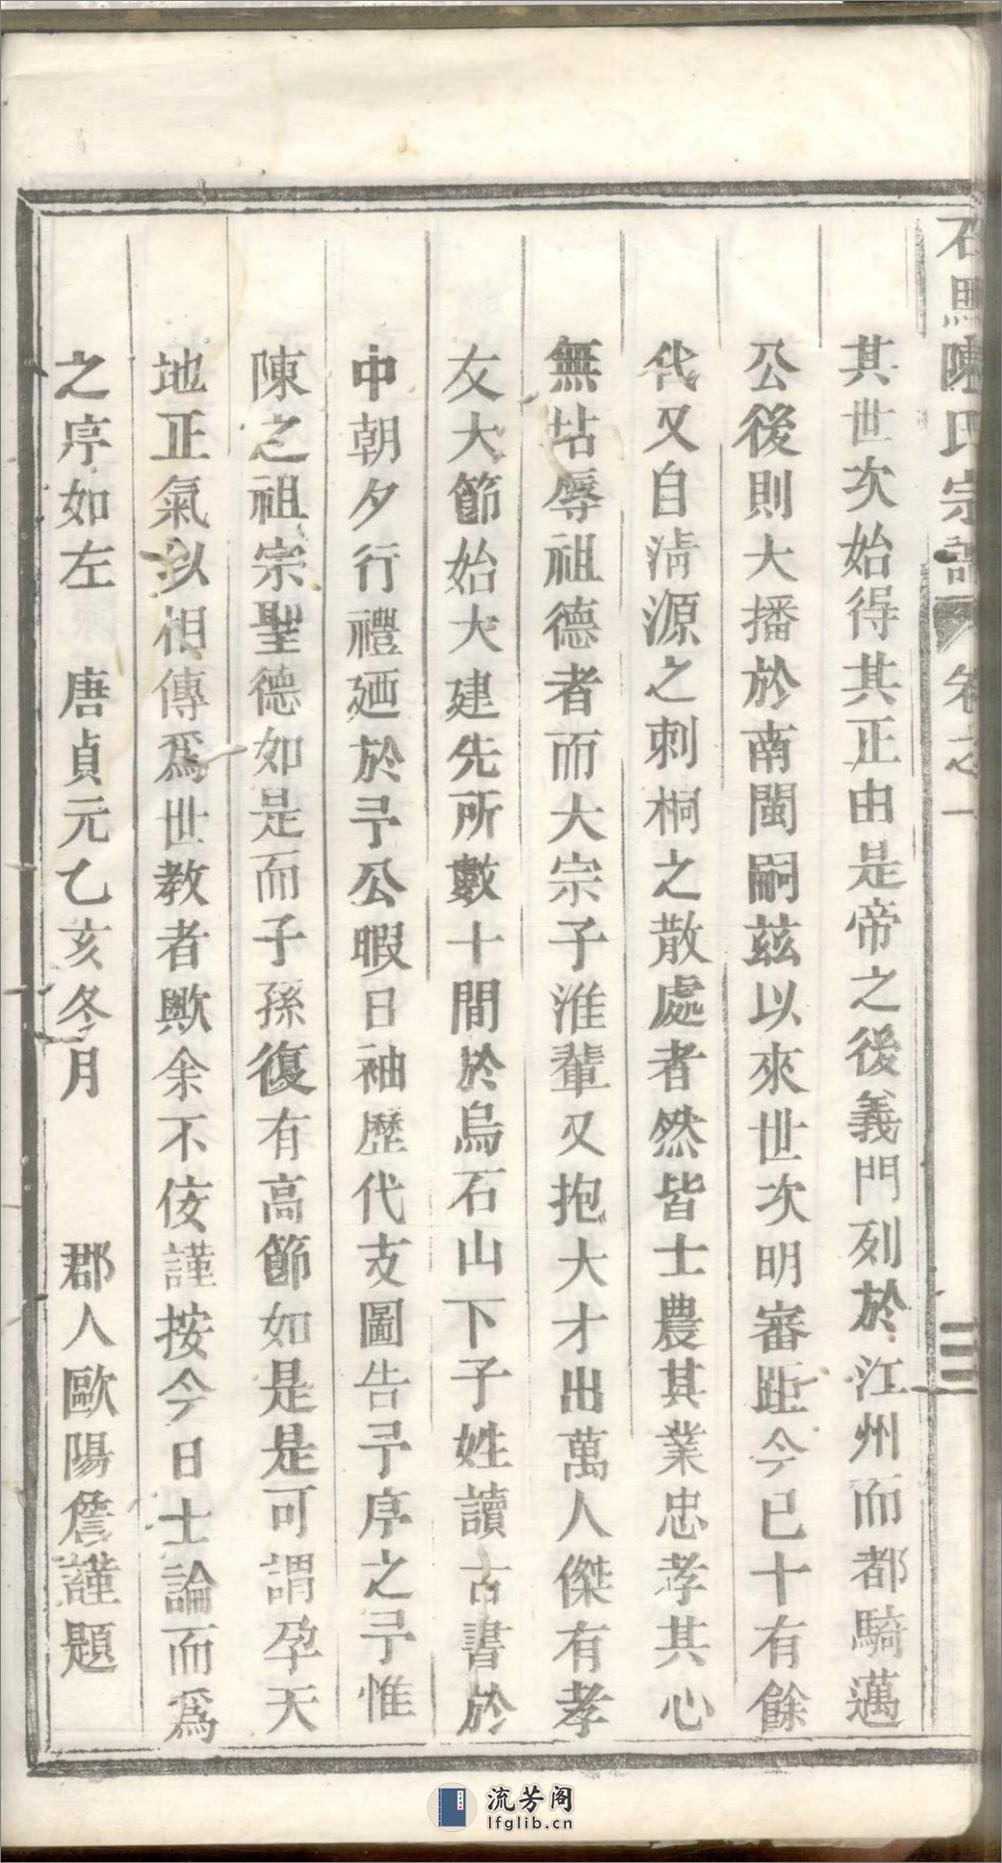 石馬陳氏宗譜 卷之一 三
其世次始得其正由是帝之後義門列於江州而都騎邁
公後則大播於南閩嗣茲以來世次明審距今已十有餘
代又自清源之刺桐之散處者然皆士農其業忠孝其心
無玷辱祖德者而大宗子淮輩又抱大才出萬人傑有孝
友大節始大建先所數十間於烏石山下子姓讀古書於
中朝夕行禮廼於予公暇日袖歷代支圖告予序之予惟
陳之祖宗聖德如是而子孫復有高節如是是可謂孕天
地正氣以相傳爲世教者歟余不佞謹按今日士論而爲
之序如左 唐貞元乙亥冬月 郡人歐陽詹謹題
流芳阁
lfglib.cn